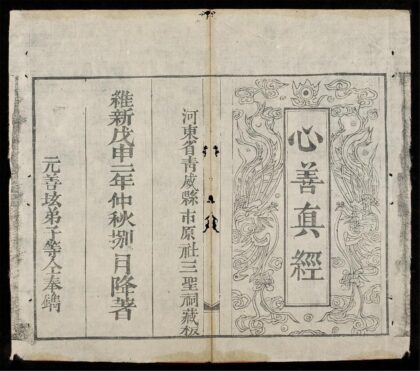 心善真經
河東省青威縣市原社三聖祠藏板
維新戊申二年仲秋捌月降著
元善玹弟子等仝奉鐫